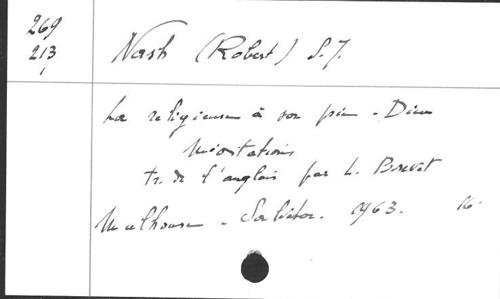 269
213
Nash (Robert) S.J.
La religieuse à son prie-Dieu
Méditations
tr. de l'anglais par L. Brevet
Mulhouse - Salvator. 1963. 16.